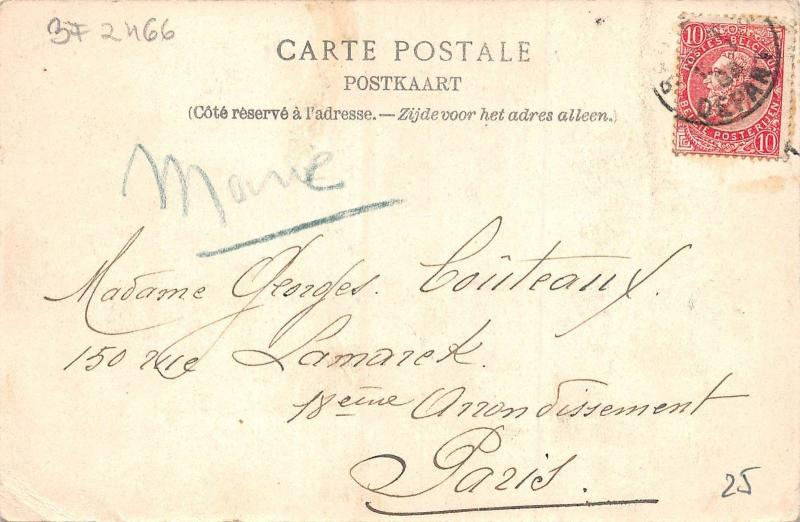 3F 2466
CARTE POSTALE
POSTKAART
(Côté réservé à l'adresse. — Zijde voor het adres alleen.)
10
POSTES BELGIQUE
DEPART
BELGIË POSTERIJEN
10
Madame Georges. Coûteaux.
150 rue Lamarck.
18eme Arrondissement
Paris.
25